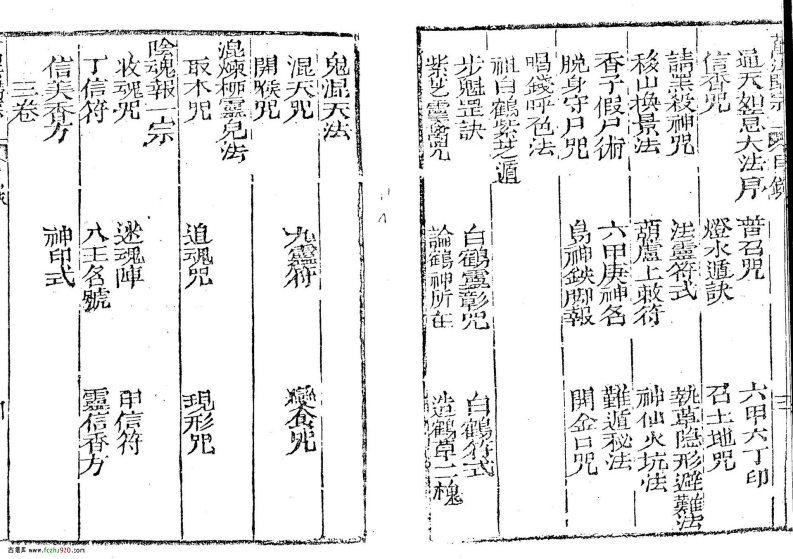 通天如意大法序 普召咒 六甲六丁印
信香咒 燈水遁訣 召土地咒
請黑殺神咒 法靈符式 執草隐形避難法
移山換景法 葫蘆上敕符 神仙火坑法
香子假尸術 六甲庚神名 難遁秘法
脫身守尸咒 島神鈌脚報 開金口咒
唱錢呼色法
祖白鶴紫芝遁
步魁罡訣 白鶴靈彰咒 白鶴符式
紫芝靈咒 論鶴神所在 造鶴草二槐
鬼混天法
混天咒 九靈符 變食咒
開喉咒
混煉栁靈兒法
取木咒 追魂咒 現形咒
隂魂報一宗
收魂咒 迷魂陣 甲信符
丁信符 八王名號 靈信香方
信美香方 神印式
三卷
古籍库 www.fczhu920.com